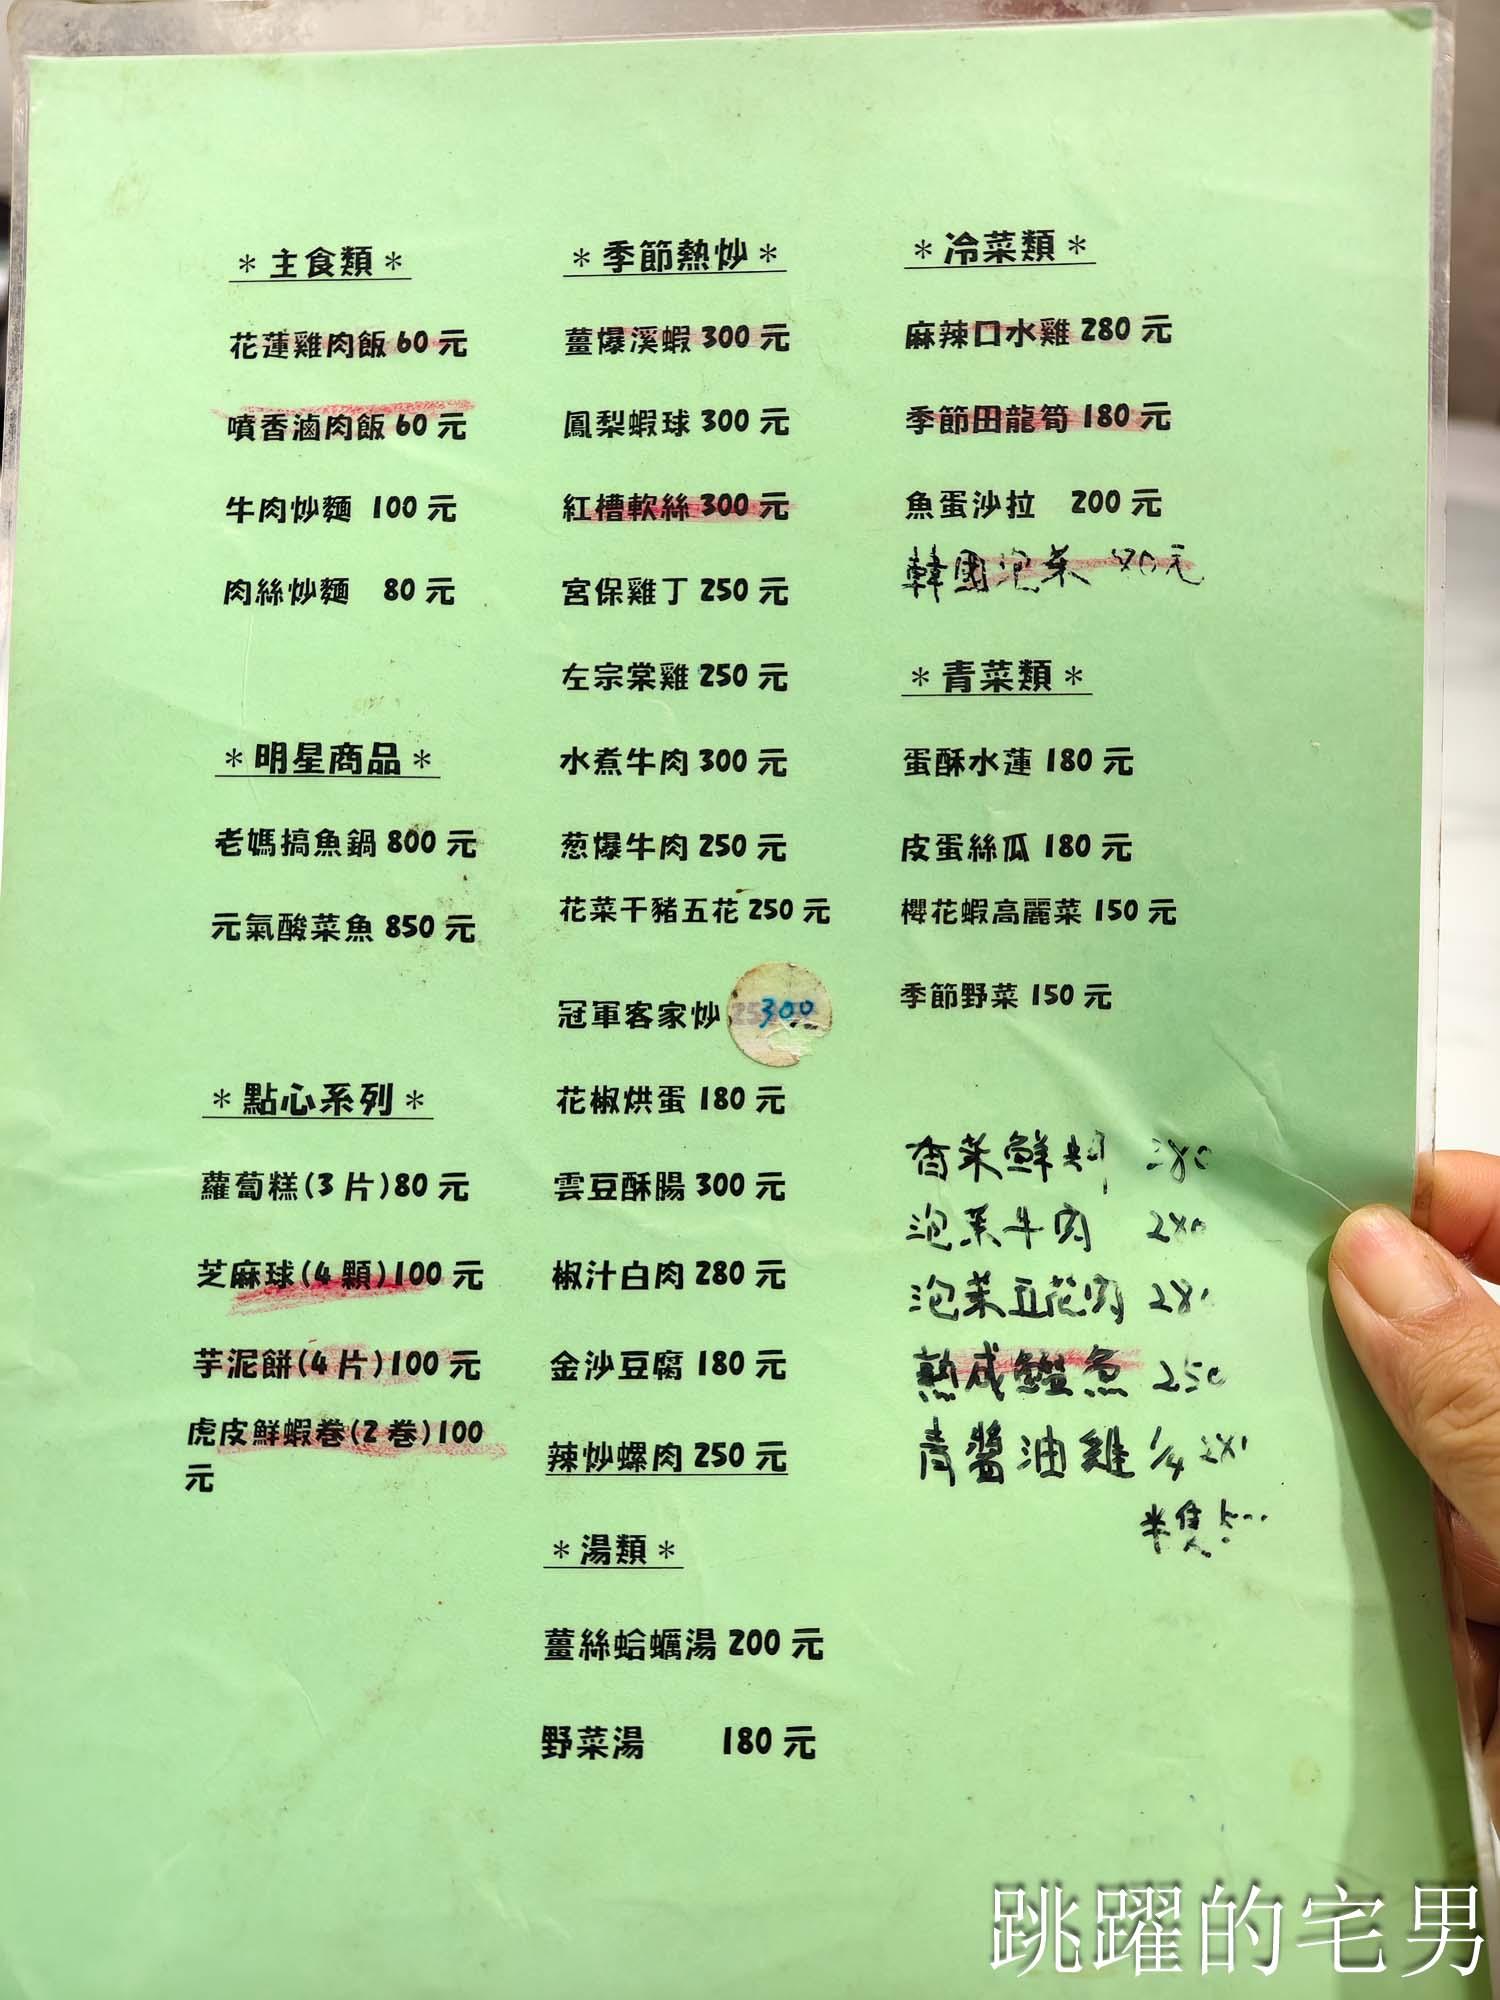 ＊主食類＊
花蓮雞肉飯 60 元
噴香滷肉飯 60 元
牛肉炒麵 100 元
肉絲炒麵 80 元
＊明星商品＊
老媽搞魚鍋 800 元
元氣酸菜魚 850 元
＊點心系列＊
蘿蔔糕(3 片)80 元
芝麻球(4 顆)100 元
芋泥餅(4 片)100 元
虎皮鮮蝦卷(2 卷)100
元
＊季節熱炒＊
薑爆溪蝦 300 元
鳳梨蝦球 300 元
紅槽軟絲 300 元
宮保雞丁 250 元
左宗棠雞 250 元
水煮牛肉 300 元
葱爆牛肉 250 元
花菜干豬五花 250 元
冠軍客家炒 300
花椒烘蛋 180 元
雲豆酥腸 300 元
椒汁白肉 280 元
金沙豆腐 180 元
辣炒螺肉 250 元
＊湯類＊
薑絲蛤蠣湯 200 元
野菜湯 180 元
＊冷菜類＊
麻辣口水雞 280 元
季節田龍筍 180 元
魚蛋沙拉 200 元
韓國泡菜 元
＊青菜類＊
蛋酥水蓮 180 元
皮蛋絲瓜 180 元
櫻花蝦高麗菜 150 元
季節野菜 150 元
香菜鮮蚵 280
泡菜牛肉 280
泡菜五花肉 280
熟成鱸魚 250
青醬油雞 1/4 280
半隻
跳躍的宅男